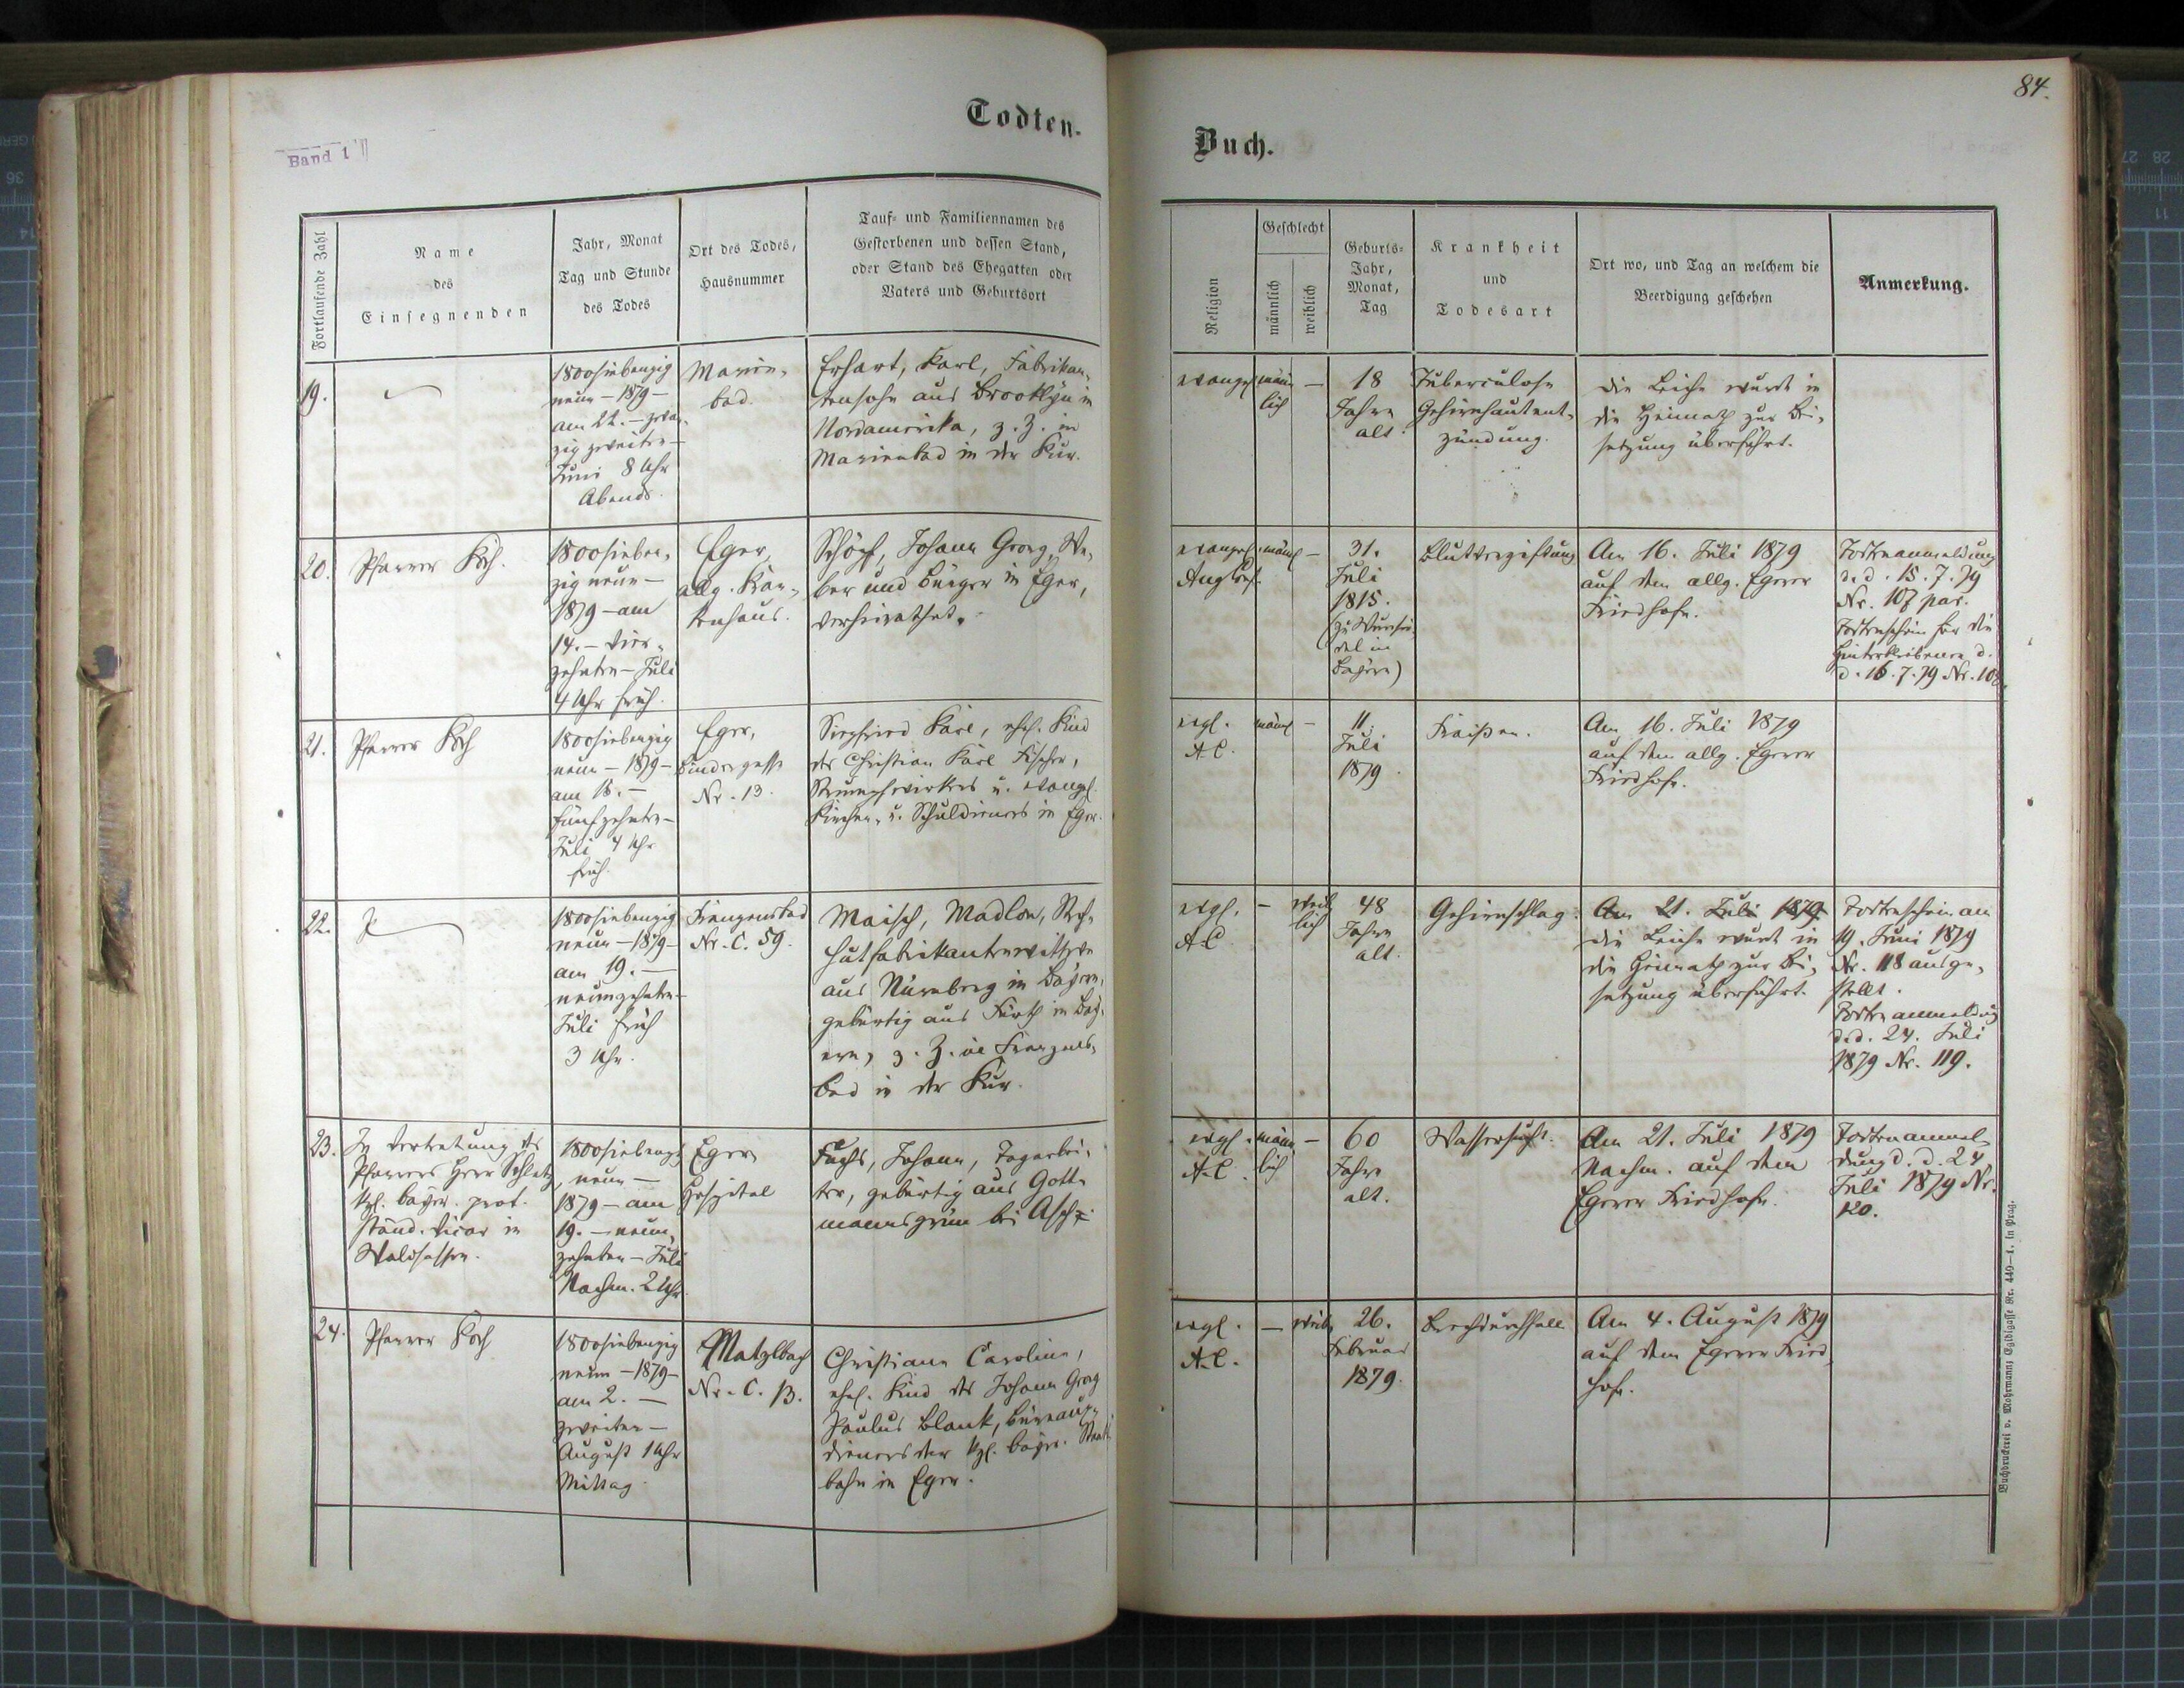 84.
Band 1
Todten-
Buch.
Fortlaufende Zahl
Name
des
Einsegnenden
Jahr, Monat
Tag und Stunde
des Todes
Ort des Todes,
Hausnummer
Tauf- und Familiennamen des
Gestorbenen und dessen Stand,
oder Stand des Ehegatten oder
Vaters und Geburtsort
Religion
Geschlecht
männlich
weiblich
Geburts-
Jahr,
Monat,
Tag
Krankheit
und
Todesart
Ort wo, und Tag an welchem die
Beerdigung geschehen
Anmerkung.
19.
1800siebenzig
neun – 1879 –
am 22. – zwan-
zig zweiten –
Juni 8 Uhr
Abends.
Marien-
bad.
Erhart, Karl, Fabrikan-
tensohn aus Brooklyn in
Nordamerika, z. Z. in
Marienbad in der Kur.
evangel
männ
lich
–
18
Jahre
alt.
Tuberculose
Gehirnhautent-
zündung.
Die Leiche wurde in
die Heimath zur Bei-
setzung überführt.
20.
Pfarrer Koch.
1800sieben-
zig neun –
1879 – am
14. – vier-
zehnten – Juli
4 Uhr früh.
Eger,
allg. Kran-
kenhaus.
Schöpf, Johann Georg, We-
ber und Bürger in Eger,
verheirathet.
evangel.
Augs Conf.
männl
–
31.
Juli
1815.
(zu Wunsie-
del in
Bayern)
Blutvergiftung
Am 16. Juli 1879
auf dem allg. Egerer
Friedhofe.
Todtenanmeldung
d. d. 15. 7. 79
Nr. 107 par.
Todtenschein für die
Hinterbliebenen d.
d. 16. 7. 79 Nr. 108.
21.
Pfarrer Koch
1800siebenzig
neun – 1879 –
am 15. –
fünfzehnten –
Juli 4 Uhr
früh.
Eger,
Bindergasse
Nr. 13.
Siegfried Karl, ehel. Kind
des Christian Karl Fischer,
Strumpfwirkers u. evangel.
Kirchen- u. Schuldieners in Eger.
evgl.
A.C.
männl
–
11.
Juli
1879.
Fraißen.
Am 16. Juli 1879
auf dem allg. Egerer
Friedhofe.
22.
1800siebenzig
neun – 1879 –
am 19. –
neunzehnten –
Juli früh
3 Uhr.
Franzensbad
Nr. C. 59.
Maisch, Madlon, Stroh-
hutfabrikantenwittwe
aus Nürnberg in Bayern,
gebürtig aus Fürth in Bay-
ern, z. Z. in Franzens-
bad in der Kur.
evgl.
A.C.
–
weib
lich
48
Jahre
alt.
Gehirnschlag.
Am 21. Juli 1879
Die Leiche wurde in
die Heimath zur Bei-
setzung überführt.
Todtenschein am
19. Juni 1879
Nr. 118 ausge-
stellt.
Todtenanmeldung
d. d. 24. Juli
1879 Nr. 119.
23.
In Vertretung des
Pfarrers Herr
kgl. bayer. prot.
ständ. Vicar in
Waldsassen.
1800siebenzig
neun –
1879 – am
19. – neun-
zehnten – Juli
Nachm. 2 Uhr.
Eger
Hospital
Fuchs, Johann, Tagarbei-
ter, gebürtig aus Gott-
mannsgrün bei Asch.
evgl.
A.C.
männ
lich
–
60
Jahre
alt.
Wassersucht.
Am 21. Juli 1879
Nachm. auf dem
Egerer Friedhofe.
Todtenanmel-
dung d. d. 24
Juli 1879 Nr.
120.
24.
Pfarrer Koch
1800siebenzig
neun – 1879 –
am 2. –
zweiten –
August 1 Uhr
Mittag.
Matzlbach
Nr. C. 13.
Christiane Caroline,
ehel. Kind des Johann Georg
Paulus Blank, Bureau-
dieners der kgl. bayer. Staats-
bahn in Eger.
evgl.
A.C.
–
weibl
26.
Februar
1879.
Brechdurchfall
Am 4. August 1879
auf dem Egerer Fried-
hofe.
Buchdruckerei v. Mohrmanns Egidigasse Nr. 440—1. in Prag.